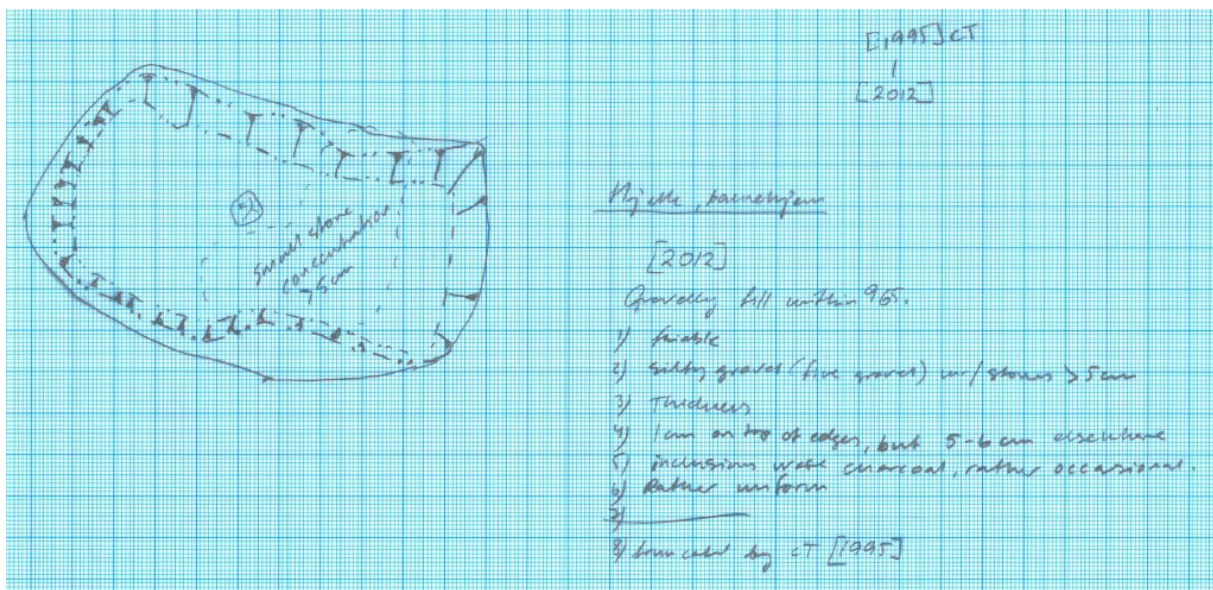 [1995] CT
[2012]
small stone
concentration
75cm
[2012]
Gravelly fill within 965.
1) friable
2) silty gravel (fine gravel) w/ stones >5cm
3) Thickness
4) 1cm on top of edges, but 5-6 cm elsewhere
5) inclusions were charcoal, rather occasional.
6) Rather uniform
7)
8) truncated by CT [1995]